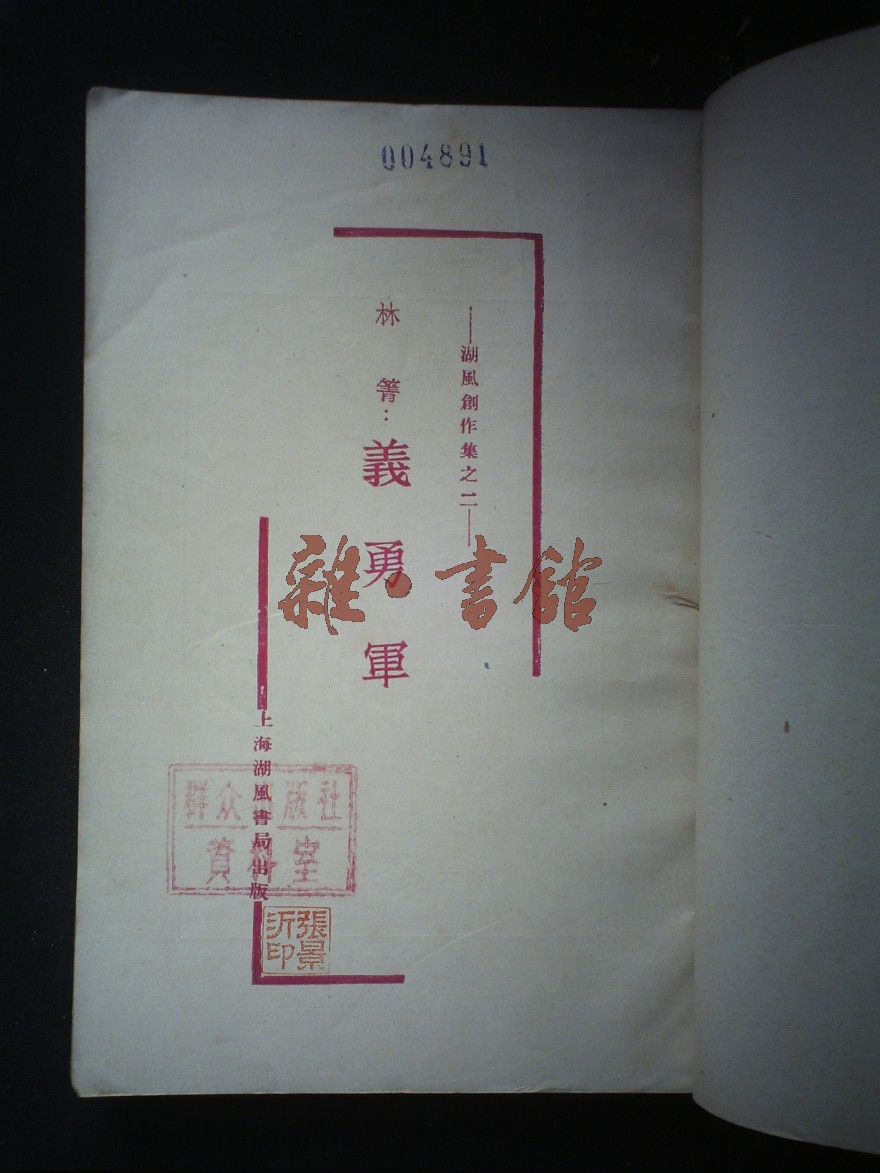 004891
——湖風創作集之二——
林箐：義勇軍
雜·書館
上海湖風書局出版
群众出版社
資料室
張景沂印